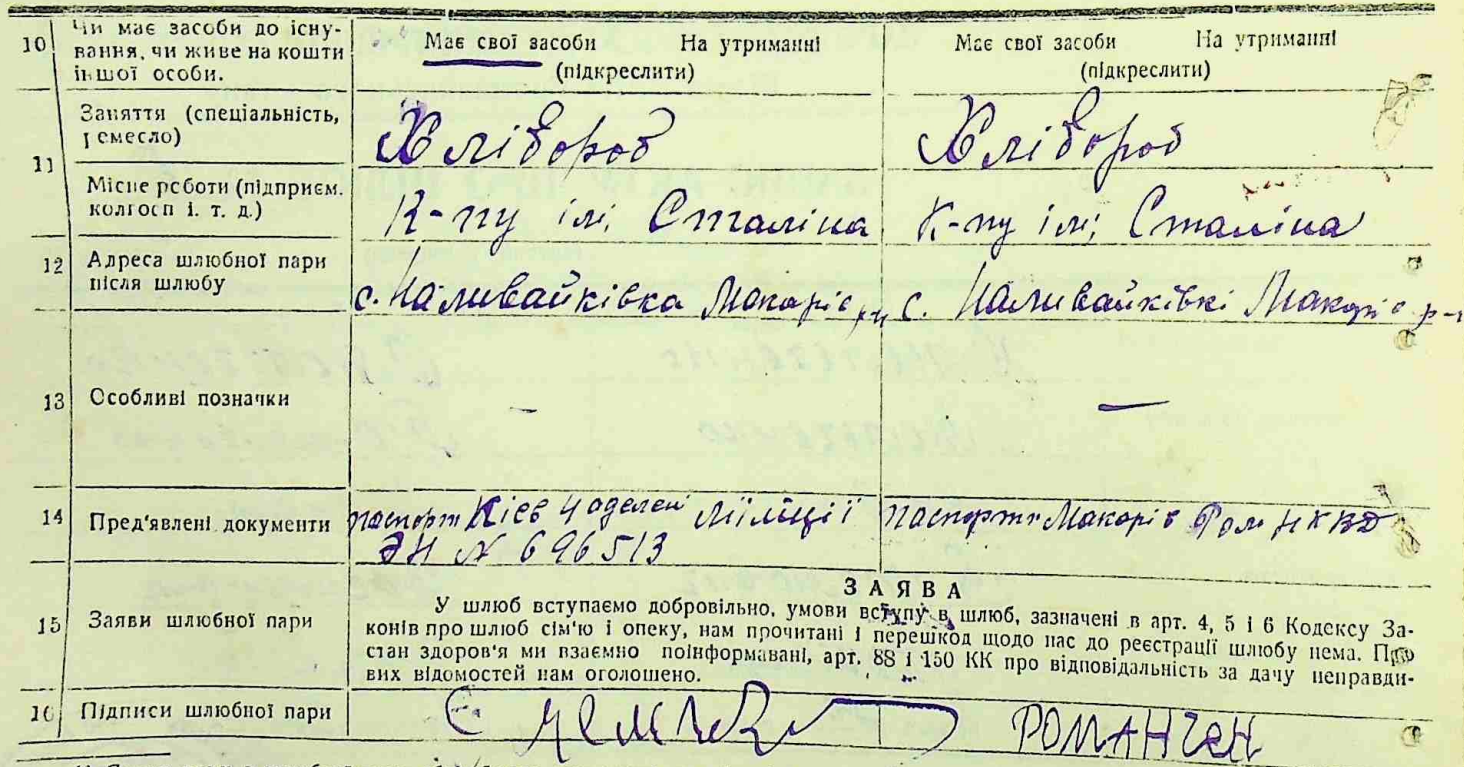 10 Чи має засоби до існу-
вання, чи живе на кошти
іншої особи.
Має свої засоби На утриманні
(підкреслити)
Має свої засоби На утриманні
(підкреслити)
11 Заняття (спеціальність,
ремесло)
Хлібороб
Хлібороб
Місце роботи (підприєм.
колгосп і. т. д.)
К-пу ім; Сталіна
К-пу ім; Сталіна
12 Адреса шлюбної пари
після шлюбу
с. Наливайківка Макарів рн
с. Наливайківкі Макарів р-н
13 Особливі позначки
—
—
14 Пред'явлені документи
паспорт Кієв 4 оделен Міліції
ЭН № 696513
паспорт Макарів НКВД
15 Заяви шлюбної пари
ЗАЯВА
У шлюб вступаємо добровільно, умови вступу в шлюб, зазначені в арт. 4, 5 і 6 Кодексу За-
конів про шлюб сім'ю і опеку, нам прочитані і перешкод щодо нас до реєстрації шлюбу нема. Про
стан здоров'я ми взаємно поінформавані, арт. 88 і 150 КК про відповідальність за дачу неправди-
вих відомостей нам оголошено.
16 Підписи шлюбної пари
РОМАНЧЕН